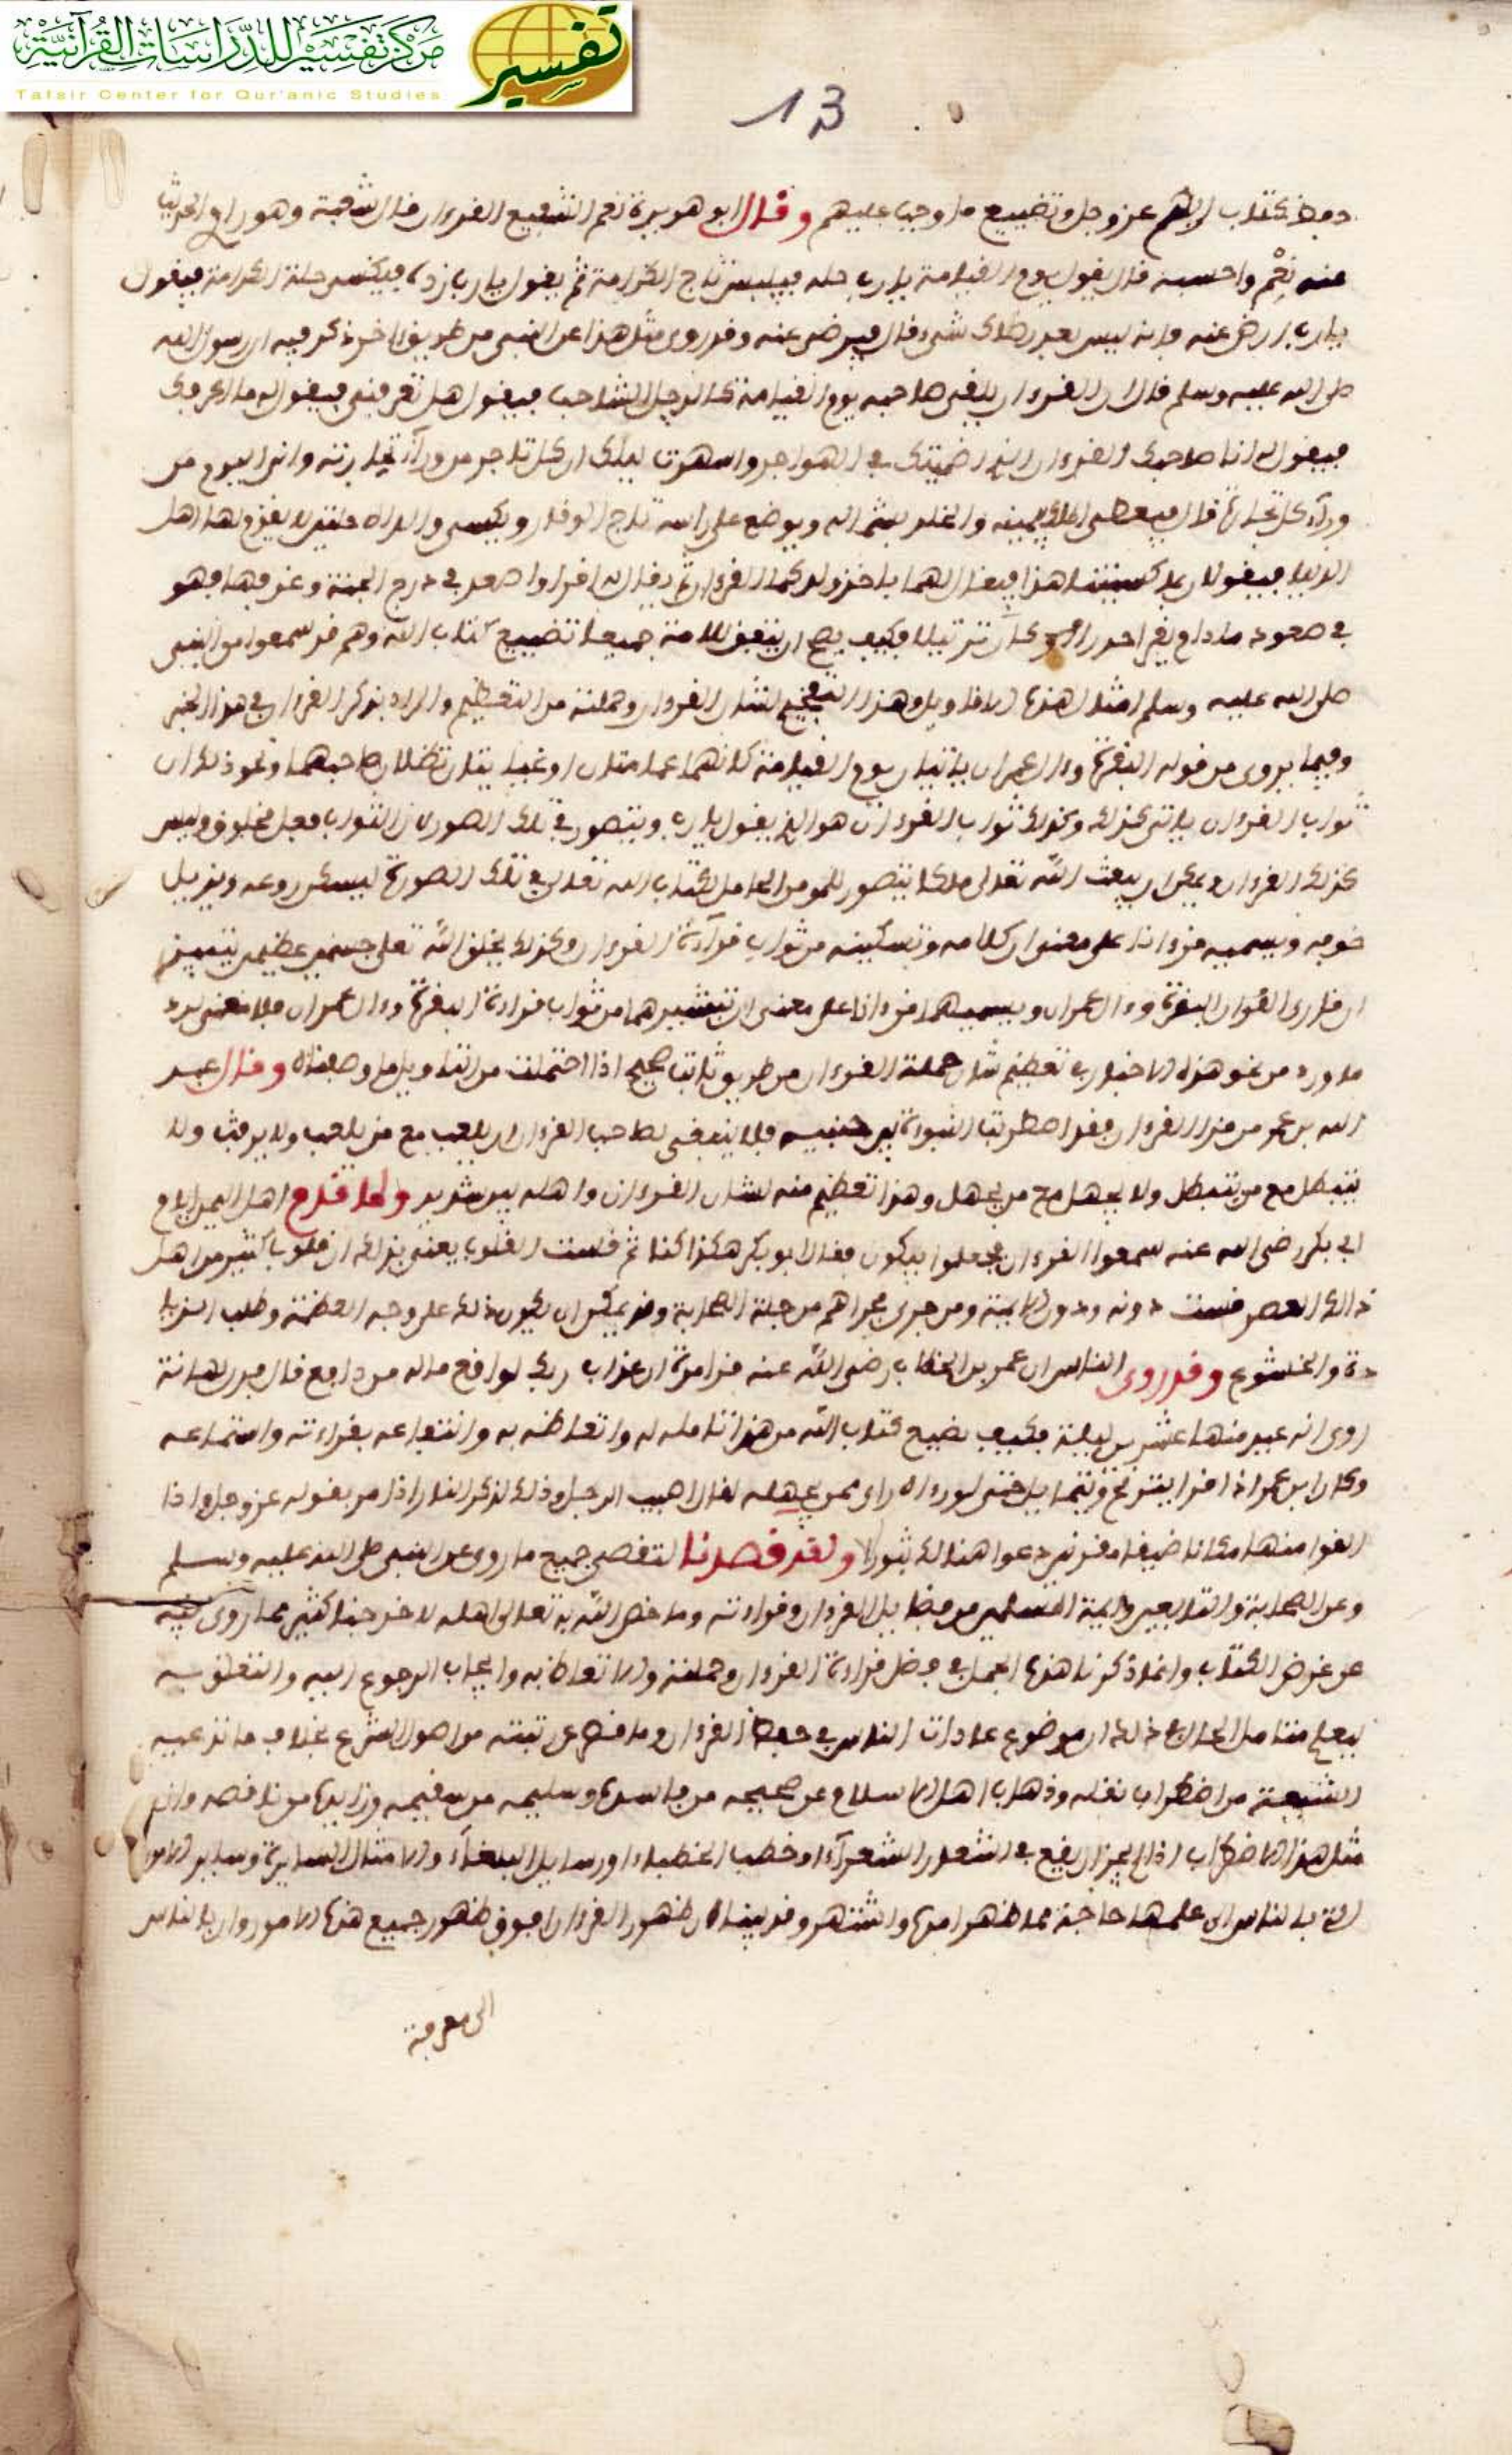 مركز تفسير للدراسات القرآنية
تفسير
Tafsir Center for Qur'anic Studies
13
حفظ كتاب ربهم عز وجل وتضييع ما وجب عليهم وقال ابو هريرة نعم الشفيع القرءان قال شعبة وهو راوي الحديث
عنه نعم واحسبه قال يقول يوم القيامة يا رب حله فيلبس تاج الكرامة ثم يقول يا رب زده فيكتسى حلة الكرامة فيقول
يا رب ارض عنه فانه ليس بعد رضاك شيء قال فيرضى عنه وقد روي مثل هذا عن النبي من طريق اخر ذكر فيه ان رسول الله
صلى الله عليه وسلم قال ان القرءان يلقى صاحبه يوم القيامة كالرجل الشاحب فيقول هل تعرفني فيقول له ما اعرفك
فيقول له انا صاحبك القرءان الذي اظميتك في الهواجر واسهرت ليلك ان كل تاجر من ورآء تجارته وانا اليوم من
ورآء كل تجارة قال فيعطى الملك بيمينه والخلد بشماله ويوضع على راسه تاج الوقار ويكسى والداه حلتين لا يقوم لهما اهل
الدنيا فيقولان بم كسينا هذا فيقال لهما باخذ ولدكما القرءان ثم يقال له اقرا واصعد في درج الجنة وغرفها فهو
في صعود ما دام يقرا حدرا او كان ترتيلا فكيف يصح ان يتفق للامة جميعا تضييع كتاب الله وهم قد سمعوا من النبي
صلى الله عليه وسلم امثال هذه الاقاويل وهذا التفخيم لشان القرءان وحملته من التعظيم والمراد بذكر القرءان في هذا الخبر
وفيما يروى من قوله البقرة وءال عمران ياتيان يوم القيامة كانهما غمامتان او غيايتان تظلان صاحبهما ونحو ذلك ان
ثواب القرءان ياتي كذلك وكذلك ثواب القرءان هو الذي يقول يا رب ويتصور في تلك الصور لان الثواب فعل مخلوق وليس
كذلك القرءان ويمكن ان يبعث الله تعالى ملكا يتصور للمومن الحامل لكتاب الله تعالى في تلك الصورة ليسكن روعه ويزيل
خوفه ويسميه قرءانا على معنى ان كلامه وتسكينه من ثواب قرآءة القرءان وكذلك يخلق الله تعالى جسمين عظيمين
ان قارئ القرءان البقرة وءال عمران ويسميهما قرءانا على معنى ان تبشيرهما من ثواب قراءة البقرة وءال عمران فلا معنى لرد
ما ورد من نحو هذه الاخبار في تعظيم شان حملة القرءان من طريق ثابت صحيح اذا احتملت من التاويل ما وصفناه وقال عبد
الله بن عمر من قرا القرءان فقد اضطربت النبوة بين جنبيه فلا ينبغي لصاحب القرءان ان يلعب مع من يلعب ولا يرفث ولا
يتبطل مع من يتبطل ولا يجهل مع من يجهل وهذا تعظيم منه لشان القرءان واهله شديد ولما قدم اهل اليمن ايام
ابي بكر رضي الله عنه سمعوا القرءان فجعلوا يبكون فقال ابو بكر هكذا كنا ثم قست القلوب يعني بذلك ان قلوب كثير من اهل
ذالك العصر قست دونه ودون الايمة ومن جرى مجراهم من جلة الصحابة وقد يمكن ان يكون ذلك على وجه العظة وطلب الزيا
دة والخشوع وقد روى الناس ان عمر بن الخطاب رضي الله عنه قرا مرة ان عذاب ربك لواقع ما له من دافع قال فرن لها رنة
روي انه عيد منها عشرين ليلة فكيف يضيع كتاب الله من هذا تامله له واتعاظه به وانتفاعه بقراءته واستماعه
وكان ابن عمر اذا قرا يترنح ويتمايل حتى لو رءاه راى ممن يجهله لقال اصيب الرجل وذلك لذكر النار اذا مر بقوله عز وجل واذا
القوا منها مكانا ضيقا مقرنين دعوا هنالك ثبورا ولقد قصدنا لتقصي جميع ما روي عن النبي صلى الله عليه وسلم
وعن الصحابة والتابعين وايمة المسلمين من فضايل القرءان وقراءته وما خص الله به تعالى اهله لاخرجنا كثير مما روي فيه
عن غرض الكتاب وانما ذكرنا هذه الجمل في فضل قراءة القرءان وحملته والاتعاظ به وايجاب الرجوع اليه والتعلق به
ليعلم متامل الحال في ذلك ان موضوع عادات الناس في حفظ القرءان وما قصر عن تبته من اصول الشرع بخلاف ما تدعيه
الشيعة من اضطراب نقله وذهاب اهل الاسلام عن صحيحه من فاسده وسليمه من سقيمه وزايده من ناقصه وان
مثل هذا الاضطراب اذا لم يجز ان يقع في اشعار الشعرآء وخطب الخطباء ورسايل البلغآء والامثال السايرة وساير الامو
التي بالناس الى علمها حاجة مما ظهر امره واشتهر وقد بينا ان ظهور القرءان فوق ظهور جميع هذه الامور وان بالناس
الى معرفة